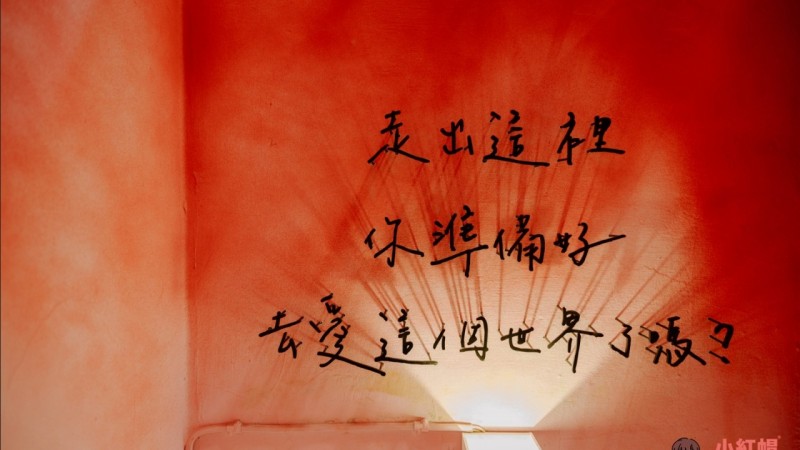 走出這裡
你準備好
去愛這個世界了嗎?
小紅帽